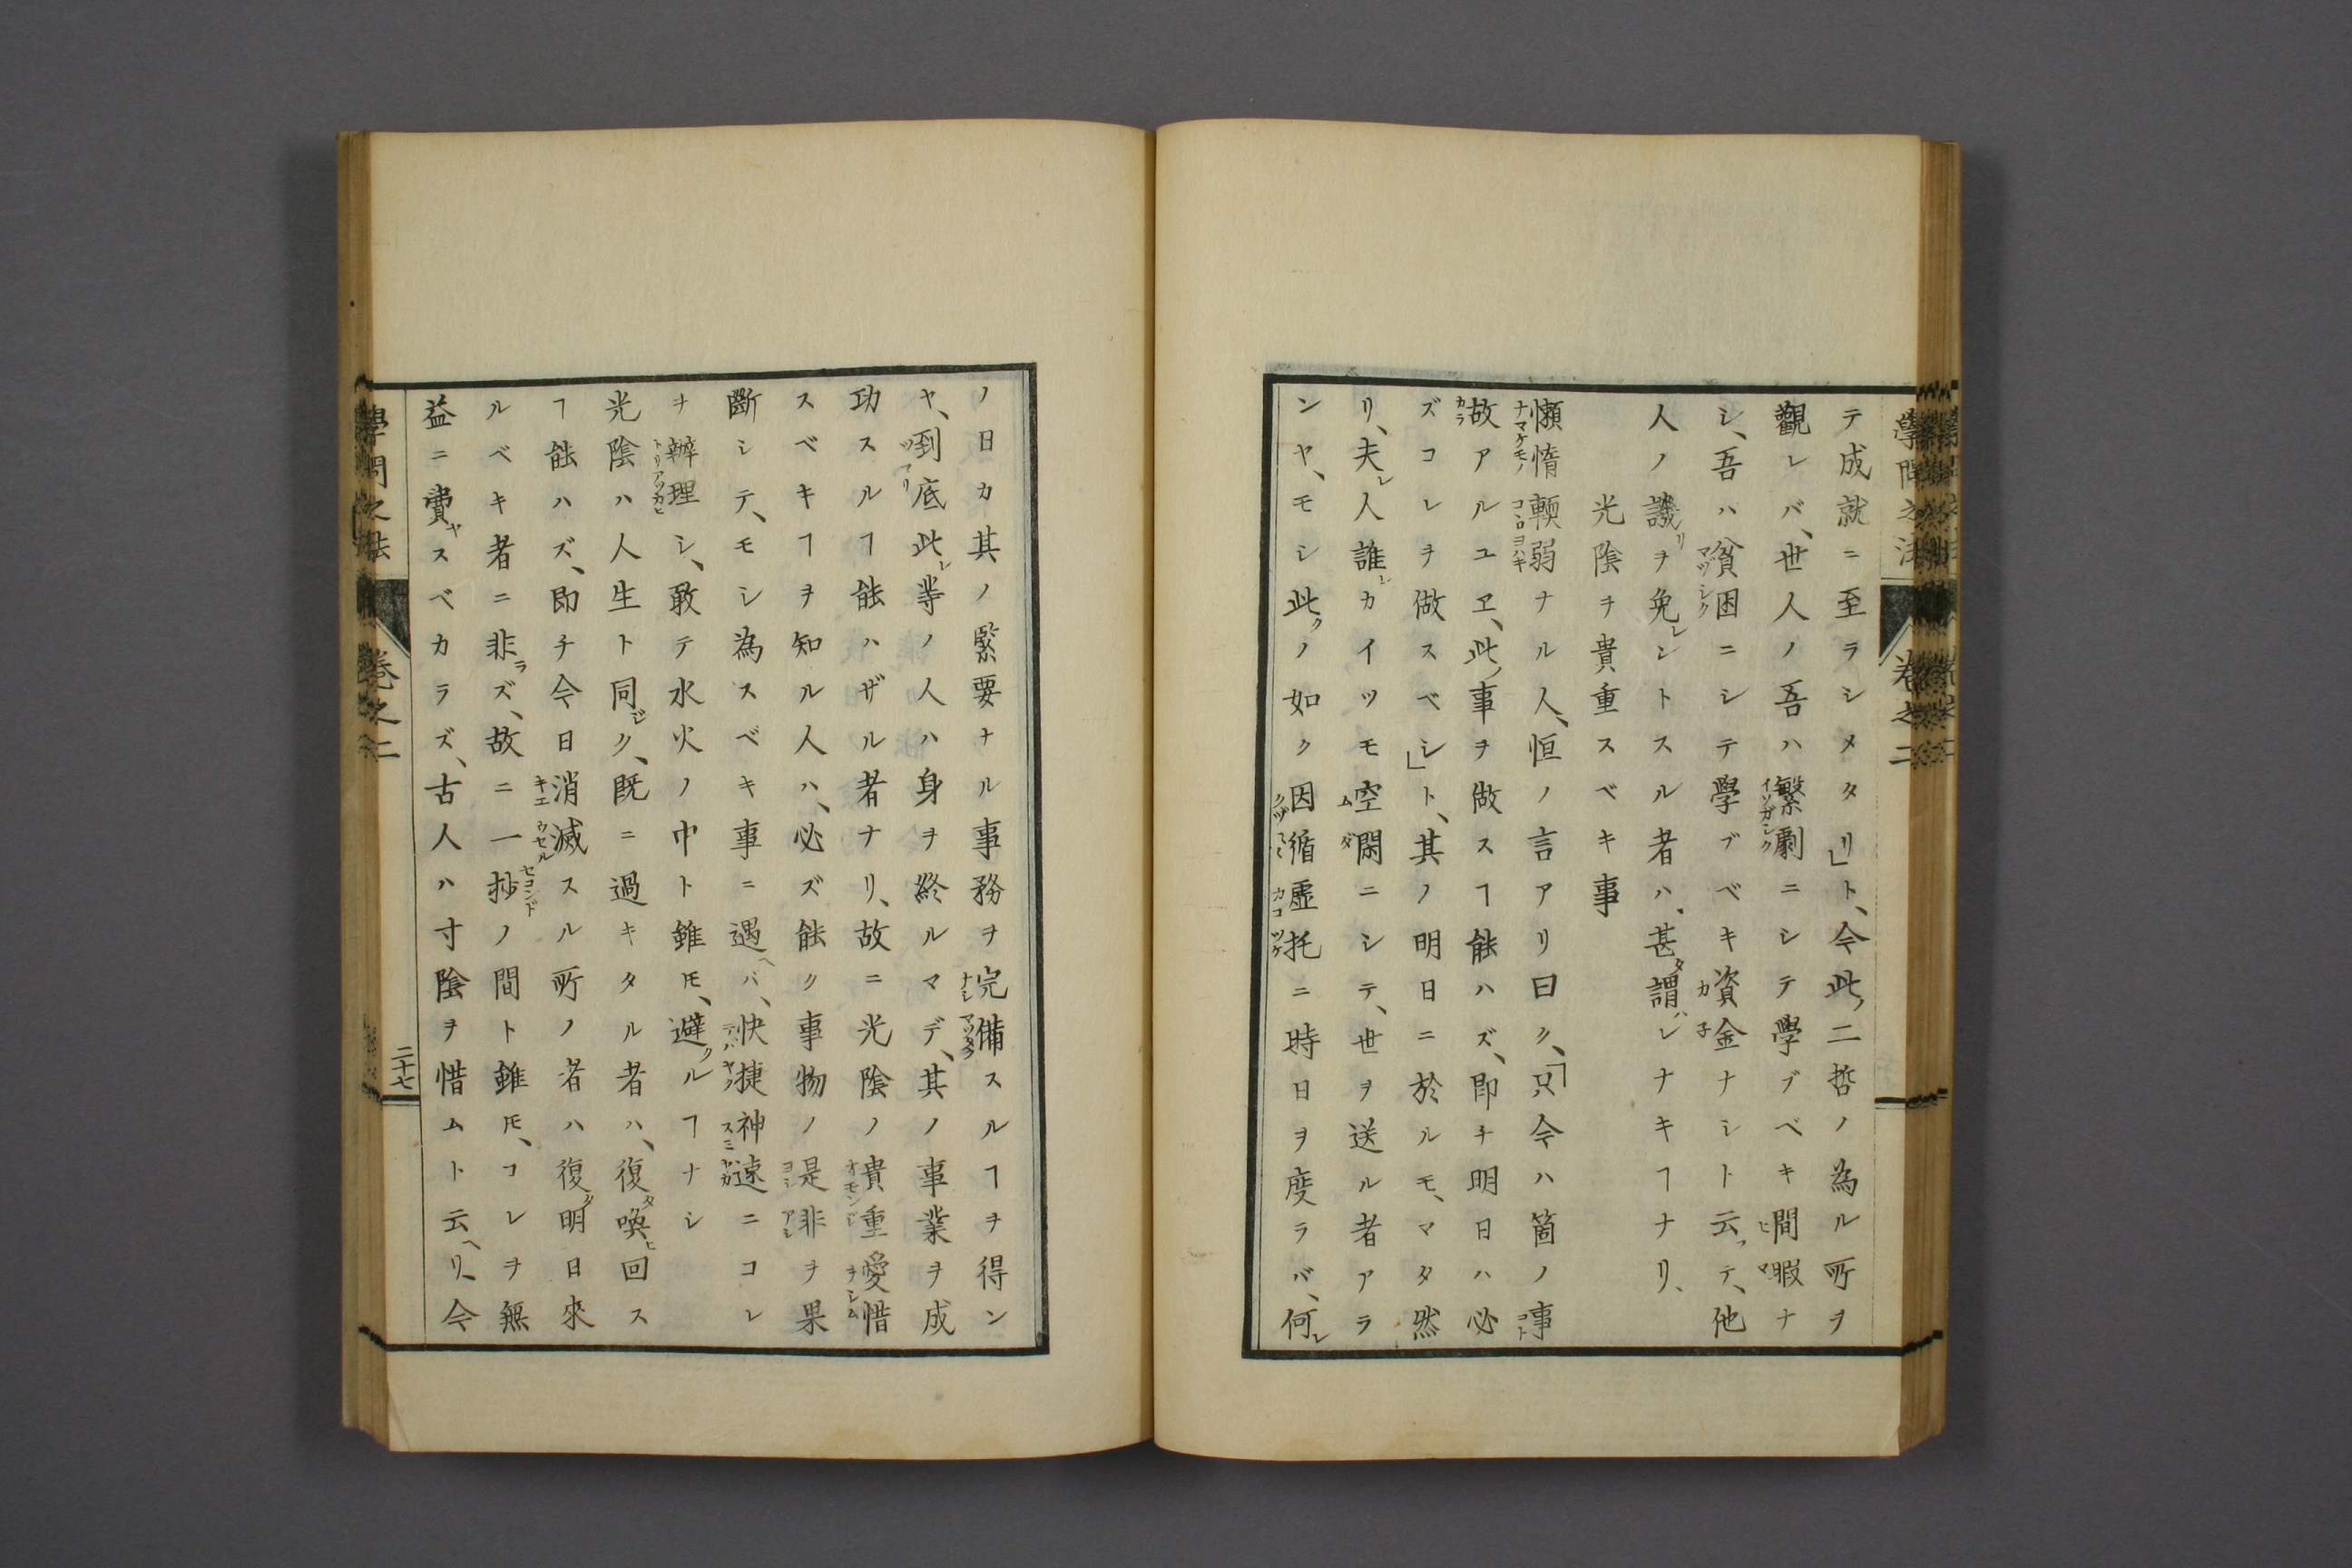 學問之法 卷之二
テ成就ニ至ラシメタリ」ト、今此ノ二哲ノ為ル所ヲ
觀レバ、世人ノ吾ハ繫劇ニシテ學ブベキ間暇ナ
シ、吾ハ貧困ニシテ學ブベキ資金ナシト云フテ、他
人ノ譏リヲ免レントスル者ハ、甚タ謂ハレナキヿナリ、
光陰ヲ貴重スベキ事
懶惰輭弱ナル人、恒ノ言アリ曰ク、「只今ハ箇ノ事
故アルユヱ、此ノ事ヲ做スヿ能ハズ、即チ明日ハ必
ズコレヲ做スベシ」ト、其ノ明日ニ於ルモ、マタ然
リ、夫レ人誰レカイツモ空閑ニシテ、世ヲ送ル者アラ
ンヤ、モシ此クノ如ク因循虛托ニ時日ヲ度ラバ、何レ
ノ日カ其ノ緊要ナル事務ヲ完備スルヿヲ得ン
ヤ、到底此レ等ノ人ハ身ヲ終ルマデ、其ノ事業ヲ成
功スルヿ能ハザル者ナリ、故ニ光陰ノ貴重愛惜
スベキヿヲ知ル人ハ、必ズ能ク事物ノ是非ヲ果
斷シテ、モシ為スベキ事ニ遇ヘバ、快捷神速ニコレ
ヲ辨理シ、敢テ水火ノ中ト雖𪜈、避クルヿナシ
光陰ハ人生ト同ジク、既ニ過キタル者ハ、復タ喚ヒ回ス
ヿ能ハズ、即チ今日消滅スル所ノ者ハ復タ明日來
ルベキ者ニ非ラズ、故ニ一抄ノ間ト雖𪜈、コレヲ無
益ニ費ヤスベカラズ、古人ハ寸陰ヲ惜ムト云ヘリ、今
學問之法 卷之二 二十七